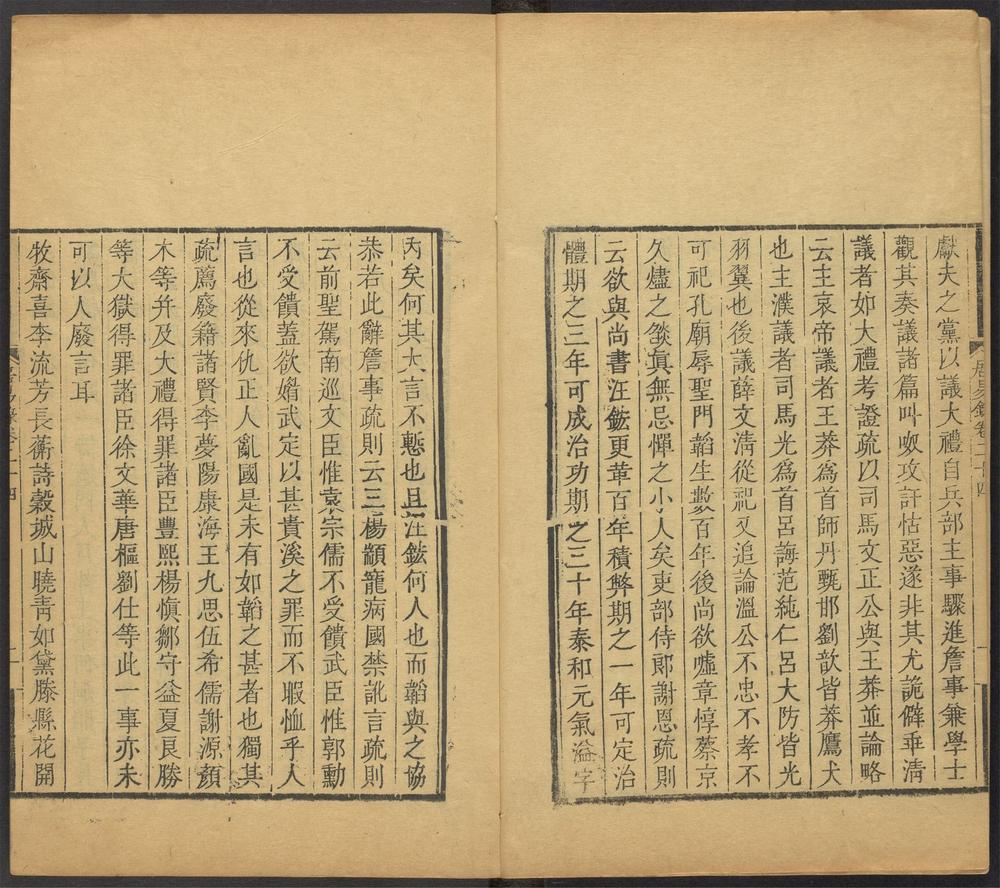 獻夫之黨以議大禮自兵部主事驟進詹事兼學士
觀其奏議諸篇叫呶攻訐怙惡遂非其尤詭僻乖清
議者如大禮考證疏以司馬文正公與王莽並論略
云主哀帝議者王莽爲首師丹甄邯劉歆皆莽鷹犬
也主濮議者司馬光爲首呂誨范純仁呂大防皆光
羽翼也後議薛文清從祀又追論溫公不忠不孝不
可祀孔廟辱聖門韜生數百年後尚欲噓章惇蔡京
久燼之燄眞無忌憚之小人矣吏部侍郎謝恩疏則
云欲與尚書汪鋐更革百年積弊期之一年可定治
體期之三年可成治功期之三十年泰和元氣溢宇
居易錄卷二十四
內矣何其大言不慙也且汪鋐何人也而韜與之協
恭若此辭詹事疏則云三楊顓寵病國禁訛言疏則
云前聖駕南巡文臣惟袁宗儒不受饋武臣惟郭勳
不受饋蓋欲媚武定以甚貴溪之罪而不暇恤乎人
言也從來仇正人亂國是未有如韜之甚者也獨其
疏薦廢籍諸賢李夢陽康海王九思伍希儒謝源顏
木等幷及大禮得罪諸臣豐熙楊愼鄒守益夏良勝
等大獄得罪諸臣徐文華唐樞劉仕等此一事亦未
可以人廢言耳
牧齋喜李流芳長蘅詩穀城山曉靑如黛滕縣花開